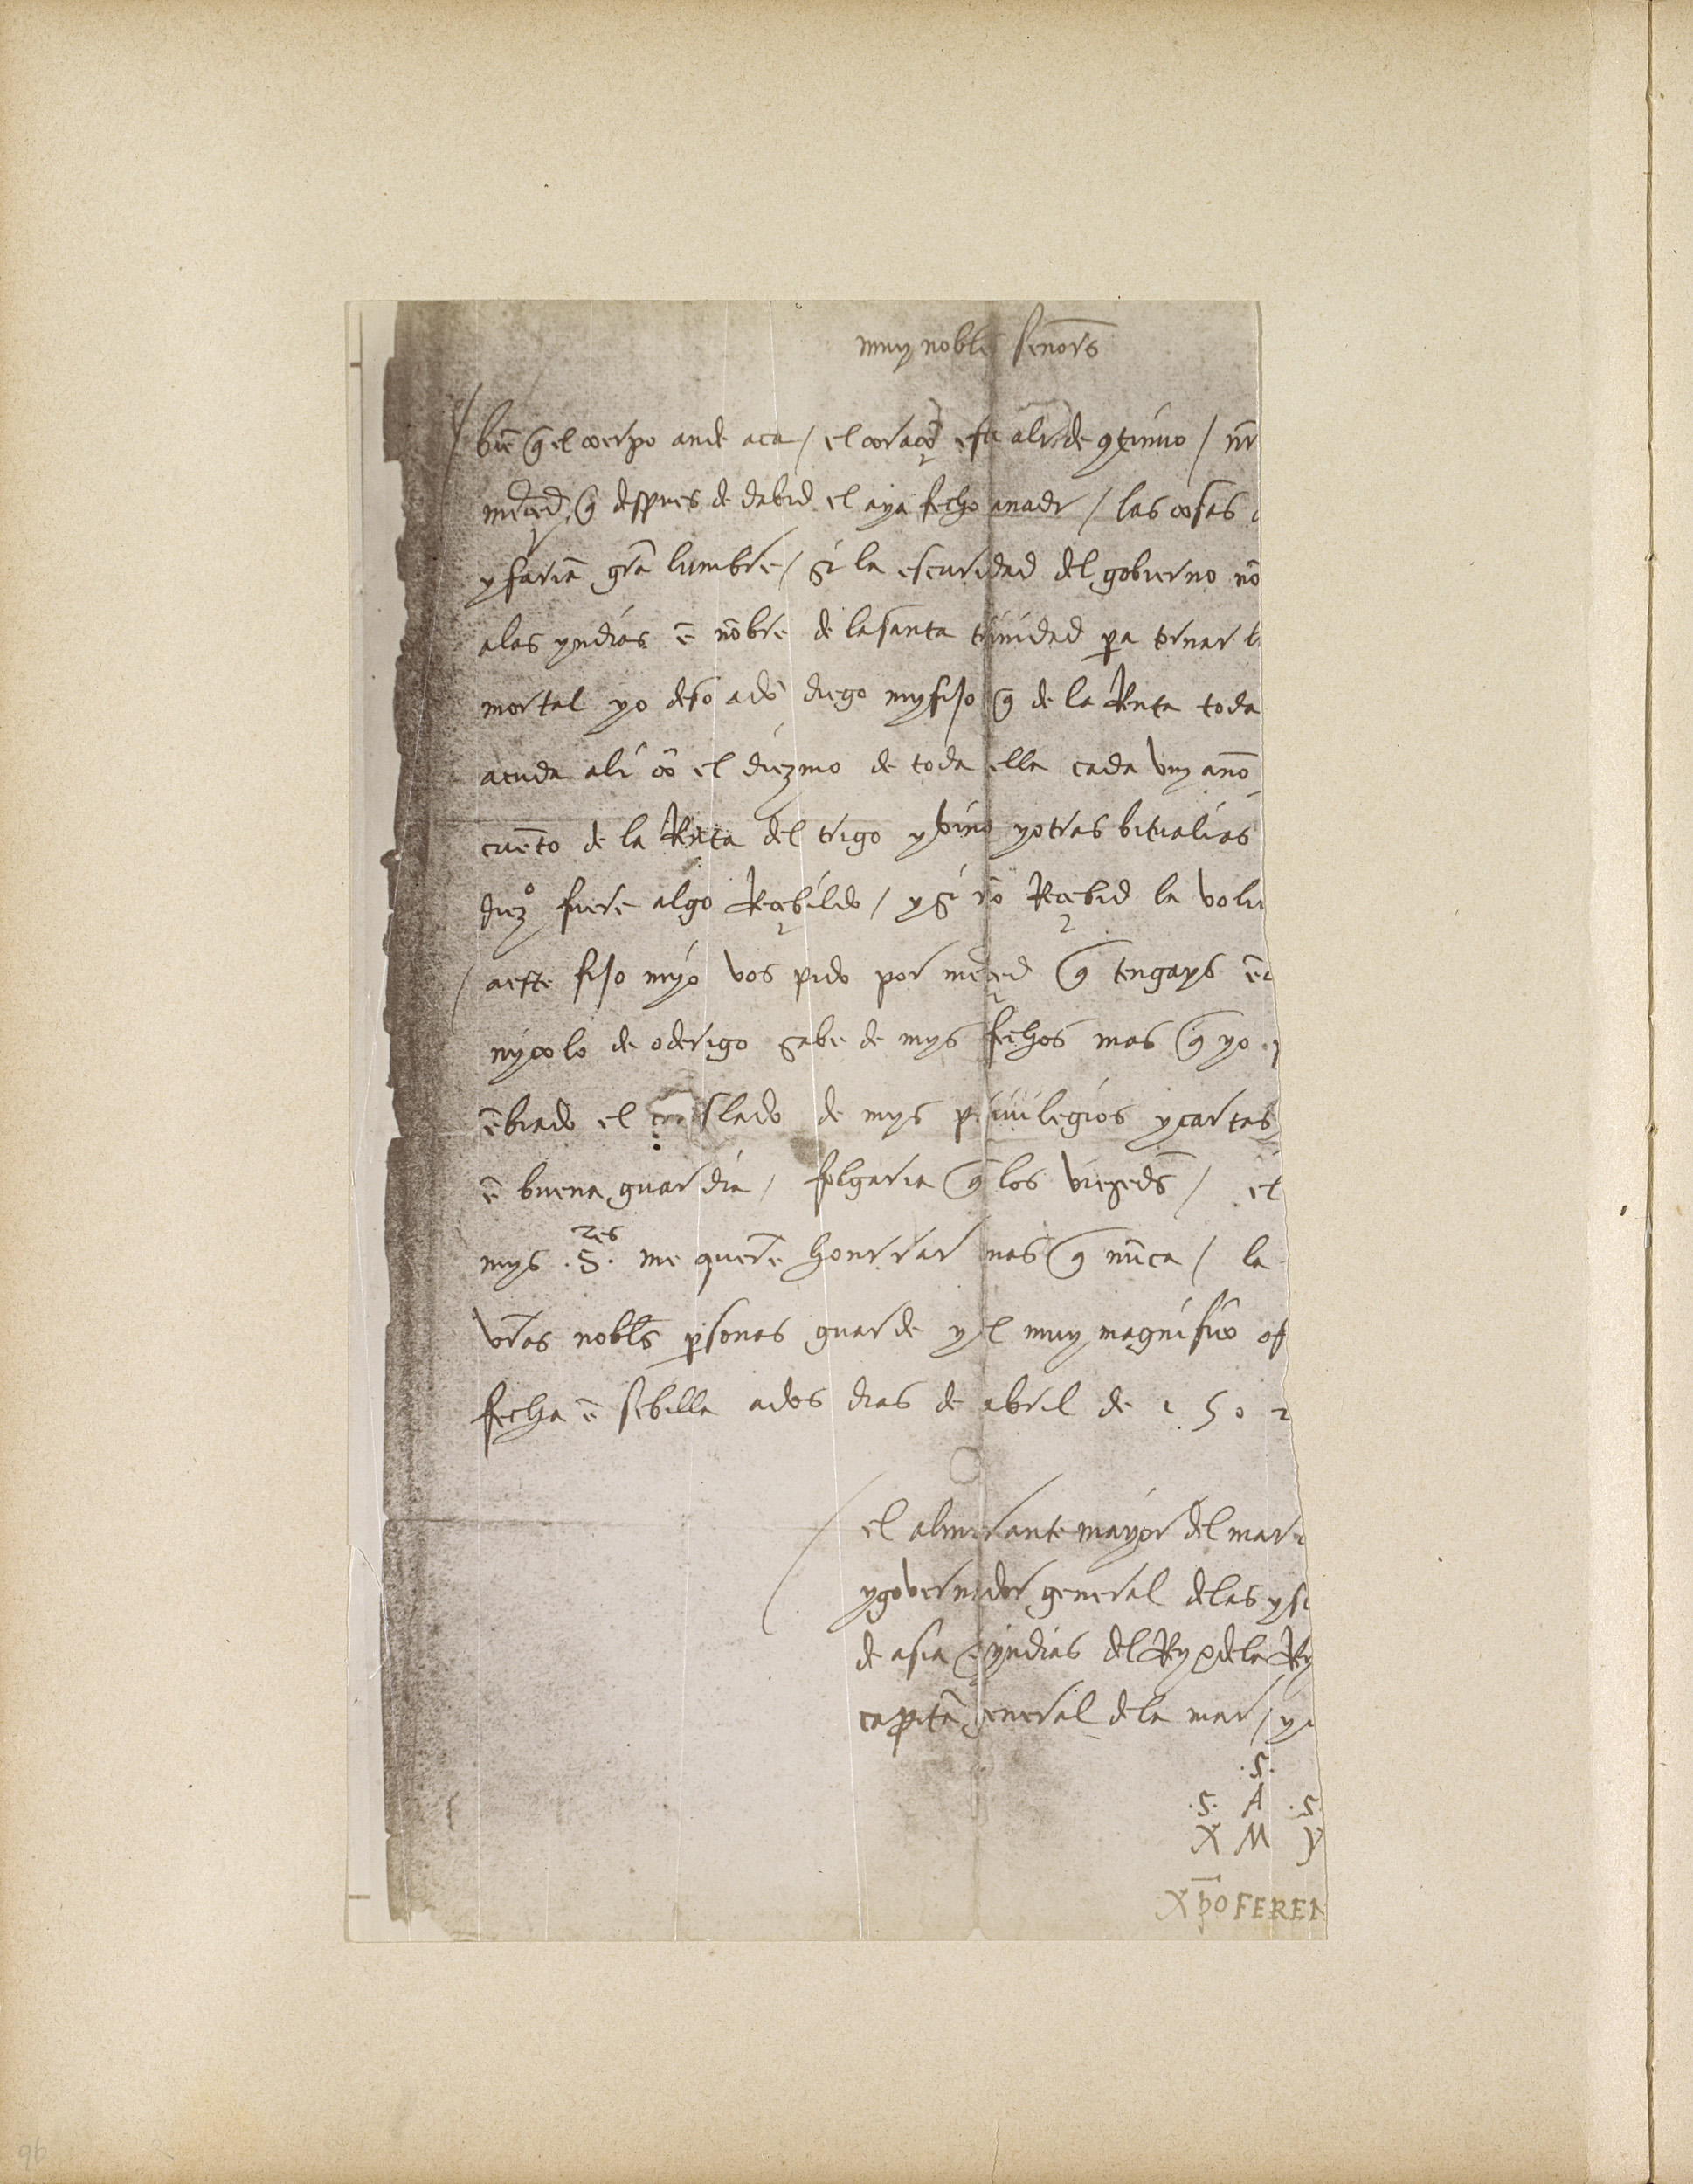 muy nobles señors
biē q̄ el coerpo ande aca / el coraçō esta ali de cōtinuo / nr
merçed q̄ despues de dabid el aya fecho a nadi / las cosas
y fariā grā lumbre / si la escuridad del gobierno nō
a las yndias ē nōbre de la santa trinidad pa tornar l
mortal yo deso a dō diego my fijo q̄ de la Renta toda
acuda ali cō el diezmo de toda ella cada vn año
cuēto de la Renta del trigo y bino y otras bitualias
diezº fuere algo Reçebildo / y si nō Reçebid la volu
a este fijo myo vos pido por merçed q̄ tengays ē
nycolo de oderigo sabe de mys fechos mas q̄ yo
ēbiado el traslado de mys priuilegios y cartas
ē buena guardia / folgaria q̄ los viesedˢ / el
mys .S.res me querē honrrar mas q̄ nūca / la
vrās nobles psonas guarde y el muy magnifico of
fecha ē sebilla a dos dias de abril de 1502
el almirante mayor del mar
y gobernador general de las ys
de asia e yndias del Rey e de la Rey
capitā general de la mar / y
.S.
.S. A .S.
X M Y
X̄p̄o FEREN
96